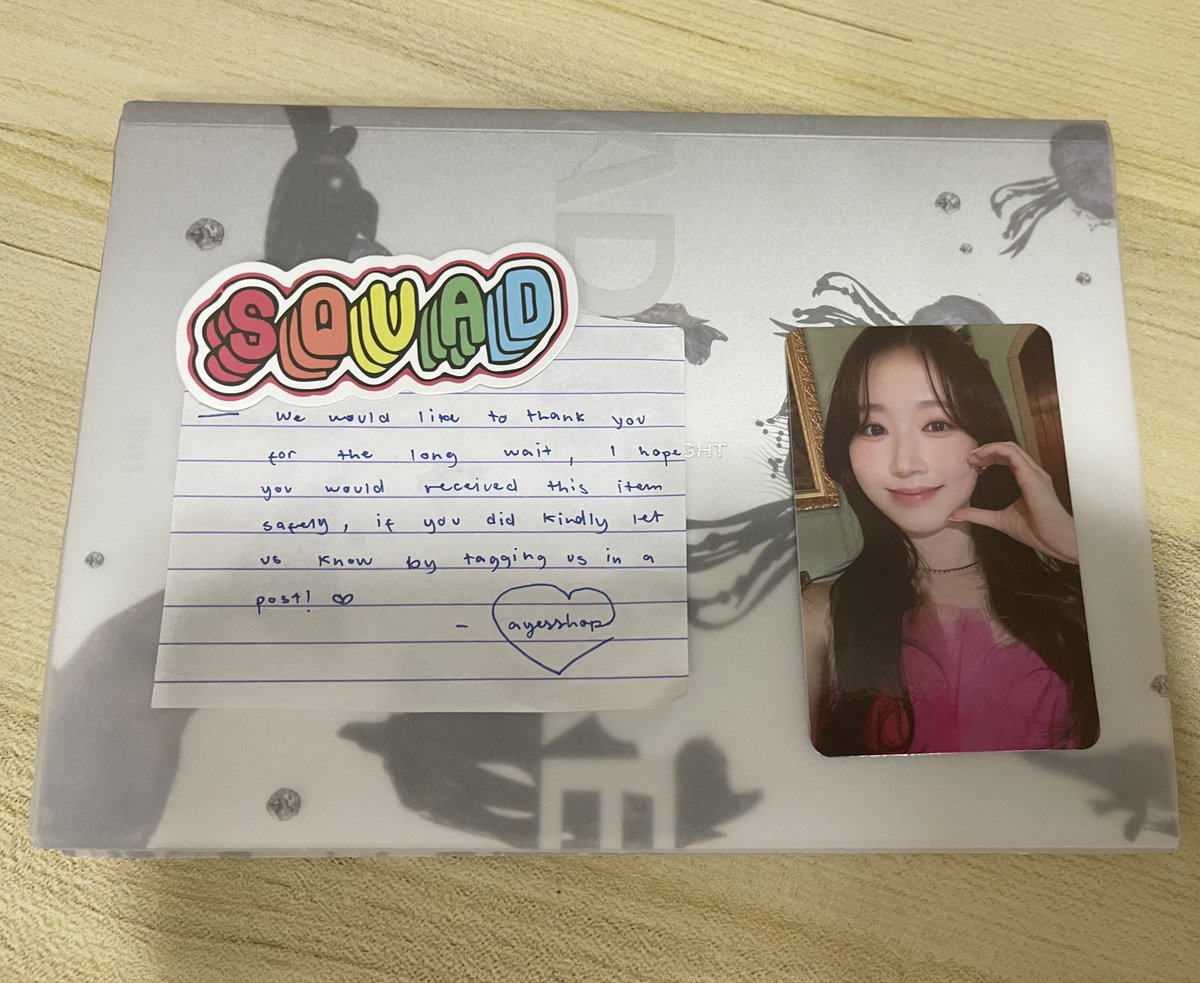 SQUAD
We would like to thank you
for the long wait, I hope
you would received this item
safely, if you did kindly let
us know by tagging us in a
post! ♡
- ayesshop